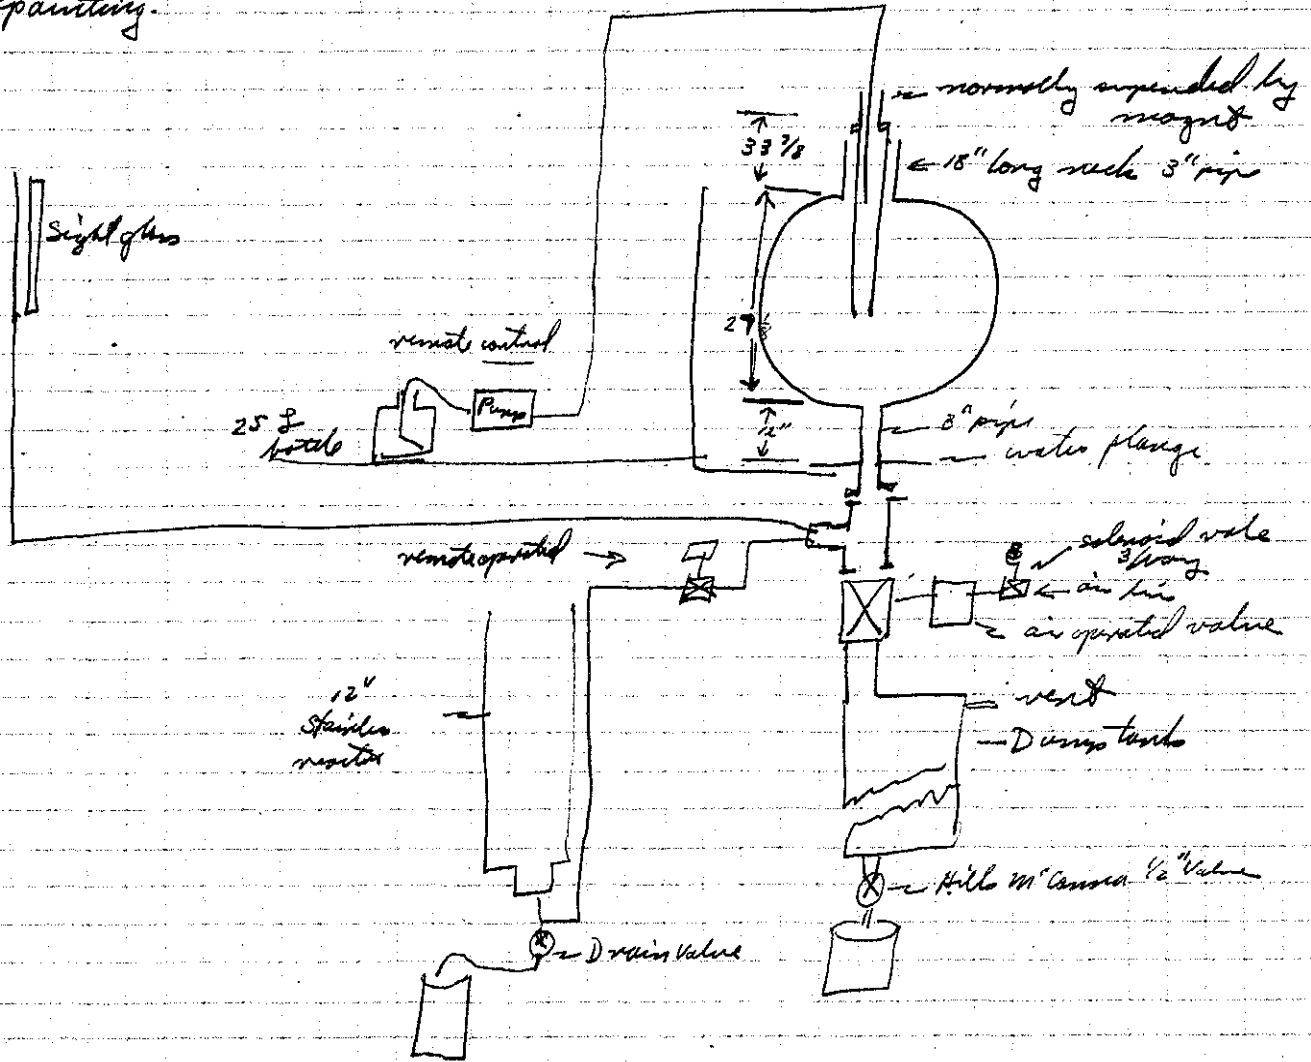 painting.
normally supended by
magnet
33 7/8
18" long neck 3" pipe
Sight glass
remote control
Pump
25 L
bottle
3" pipe
water flange
remote operated
solenoid valve
3/way
air line
air operated valve
12"
Stainless
reactor
vent
Dump tank
Hills McCanna 1/2" Valve
Drain Valve